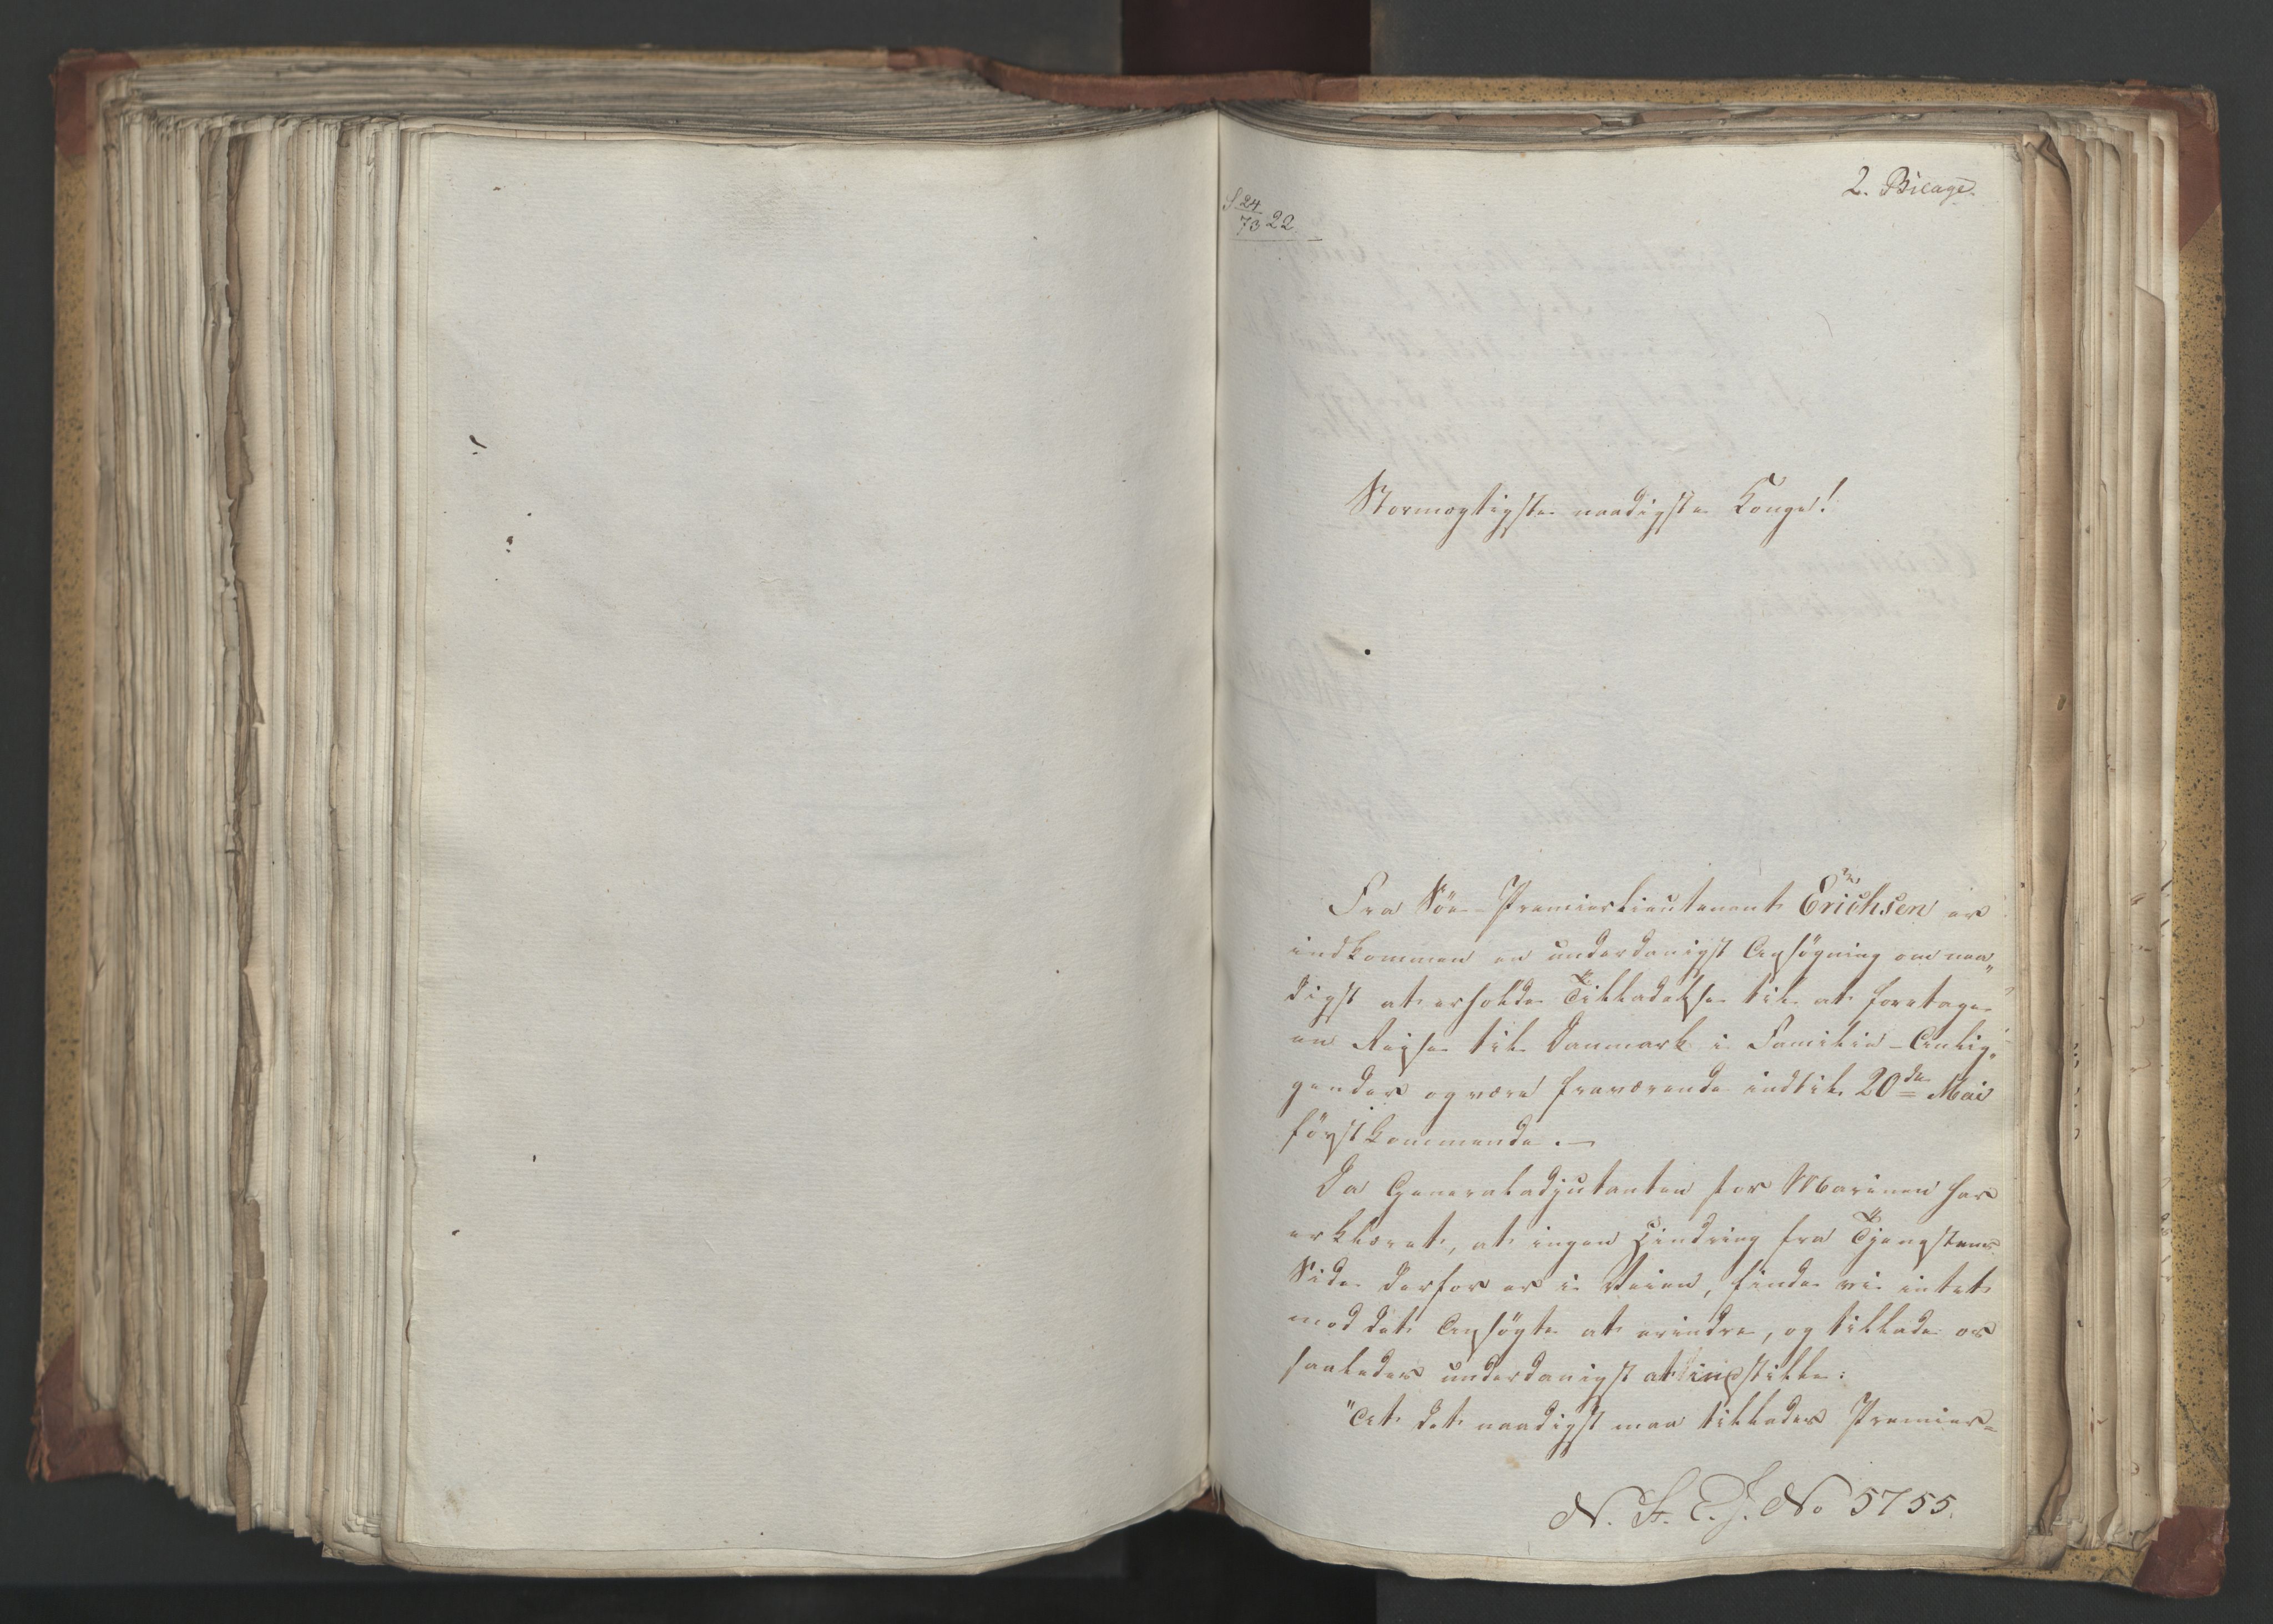 2. Bilage.
S 24/73 22
Stormægtigste naadigste Konge!
Fra Söe-Premierlieutenant Erichsen er
indkommen en underdanigst Ansögning om naa„
digst at erholde Tilladelse til at foretage
en Reise til Danmark i Familie-Anlig„
gender og være fraværende indtil 20de Mai
förstkommende. —
Da Generaladjutanten for Marinen har
erklæret, at ingen Hindring fra Tjenestens
Side derfor er i Veien, finde vi intet
mod det Ansögte at erindre, og tillade os
saaledes underdanigst at indstille:
"At det naadigst maa tillades Premier=
N. St. E. J. No 5755.